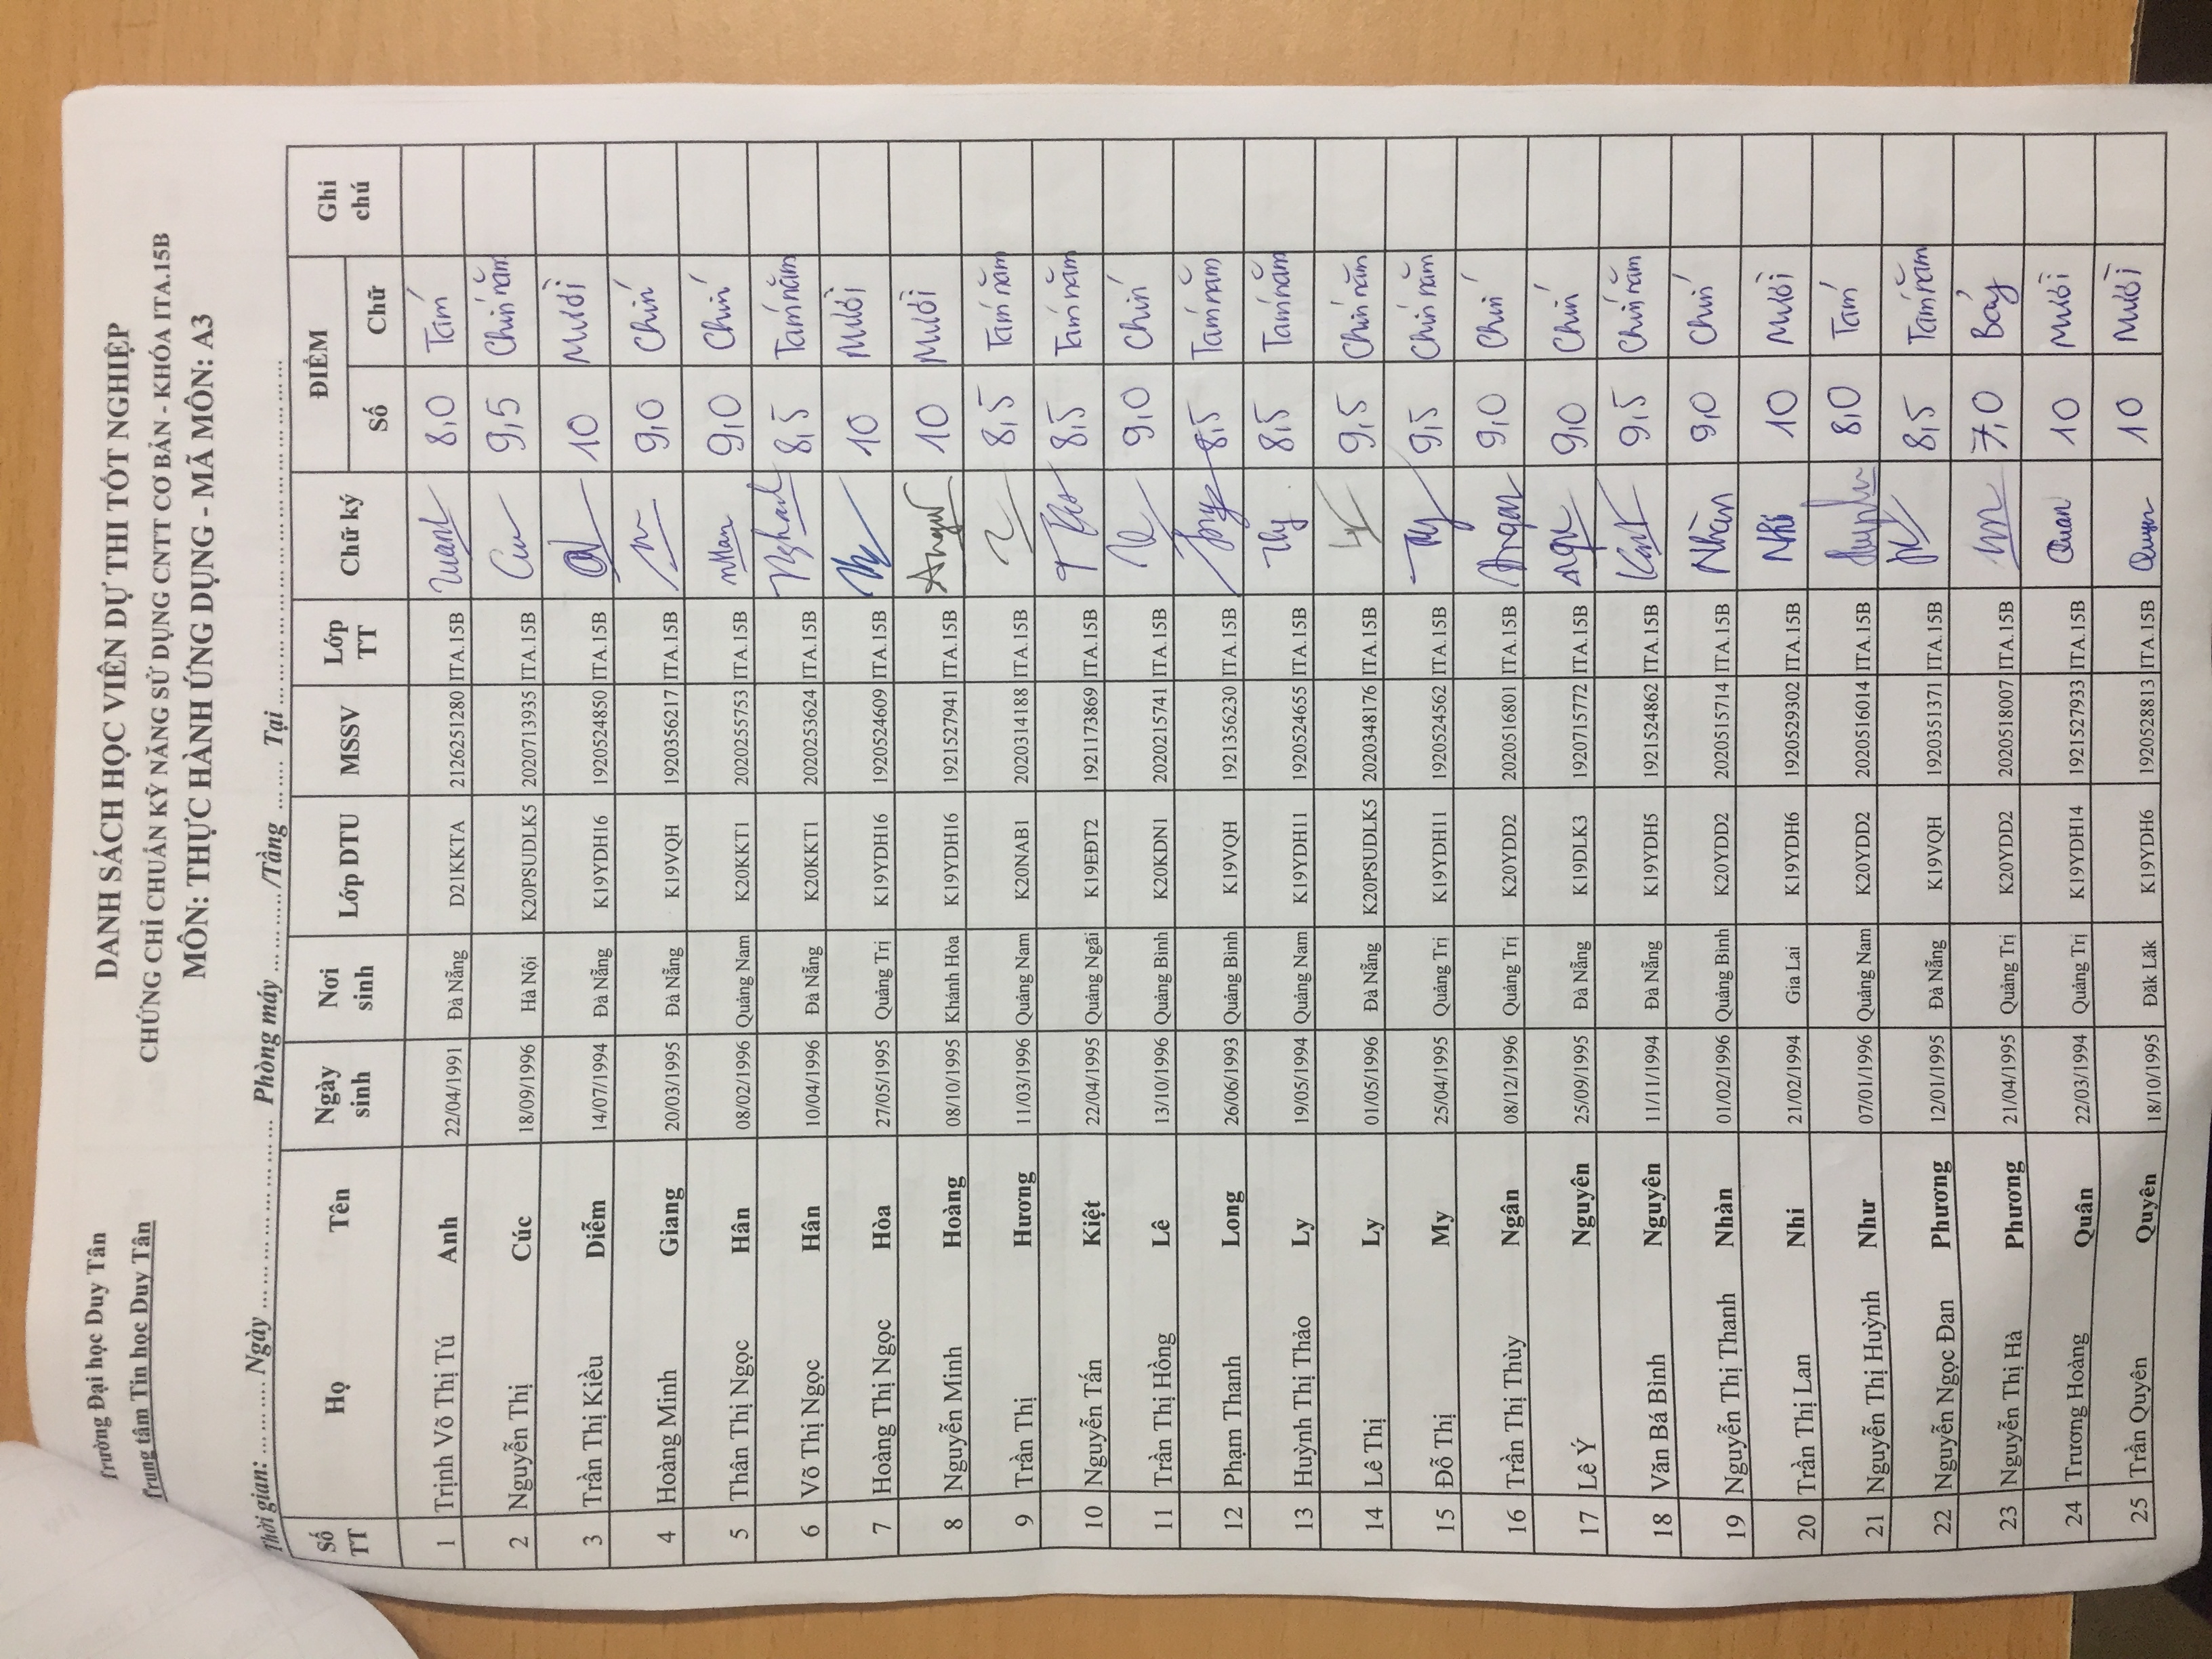 Trường Đại học Duy Tân
Trung tâm Tin học Duy Tân
DANH SÁCH HỌC VIÊN DỰ THI TỐT NGHIỆP
CHỨNG CHỈ CHUẨN KỸ NĂNG SỬ DỤNG CNTT CƠ BẢN - KHÓA ITA.15B
MÔN: THỰC HÀNH ỨNG DỤNG - MÃ MÔN: A3
Thời gian: ... ... ... Ngày ... ... ... ... ... ... ... Phòng máy ... ... ... /Tầng ... ... Tại ... ... ... ... ... ... ... ... ... ... ... ...
Số TT Họ Tên Ngày sinh Nơi sinh Lớp DTU MSSV Lớp TT Chữ ký ĐIỂM Ghi chú
Số Chữ
1 Trịnh Võ Thị Tú Anh 22/04/1991 Đà Nẵng D21KKTA 2126251280 ITA.15B 8,0 Tám
2 Nguyễn Thị Cúc 18/09/1996 Hà Nội K20PSUDLK5 2020713935 ITA.15B 9,5 Chín năm
3 Trần Thị Kiều Diễm 14/07/1994 Đà Nẵng K19YDH16 1920524850 ITA.15B 10 Mười
4 Hoàng Minh Giang 20/03/1995 Đà Nẵng K19VQH 1920356217 ITA.15B 9,0 Chín
5 Thân Thị Ngọc Hân 08/02/1996 Quảng Nam K20KKT1 2020255753 ITA.15B 9,0 Chín
6 Võ Thị Ngọc Hân 10/04/1996 Đà Nẵng K20KKT1 2020253624 ITA.15B 8,5 Tám năm
7 Hoàng Thị Ngọc Hòa 27/05/1995 Quảng Trị K19YDH16 1920524609 ITA.15B 10 Mười
8 Nguyễn Minh Hoàng 08/10/1995 Khánh Hòa K19YDH16 1921527941 ITA.15B 10 Mười
9 Trần Thị Hương 11/03/1996 Quảng Nam K20NAB1 2020314188 ITA.15B 8,5 Tám năm
10 Nguyễn Tấn Kiệt 22/04/1995 Quảng Ngãi K19EĐT2 1921173869 ITA.15B 8,5 Tám năm
11 Trần Thị Hồng Lê 13/10/1996 Quảng Bình K20KDN1 2020215741 ITA.15B 9,0 Chín
12 Phạm Thanh Long 26/06/1993 Quảng Bình K19VQH 1921356230 ITA.15B 8,5 Tám năm
13 Huỳnh Thị Thảo Ly 19/05/1994 Quảng Nam K19YDH11 1920524655 ITA.15B Thy 8,5 Tám năm
14 Lê Thị Ly 01/05/1996 Đà Nẵng K20PSUDLK5 2020348176 ITA.15B 9,5 Chín năm
15 Đỗ Thị My 25/04/1995 Quảng Trị K19YDH11 1920524562 ITA.15B 9,5 Chín năm
16 Trần Thị Thùy Ngân 08/12/1996 Quảng Trị K20YDD2 2020516801 ITA.15B 9,0 Chín
17 Lê Ý Nguyên 25/09/1995 Đà Nẵng K19DLK3 1920715772 ITA.15B 9,0 Chín
18 Văn Bá Bình Nguyên 11/11/1994 Đà Nẵng K19YDH5 1921524862 ITA.15B 9,5 Chín năm
19 Nguyễn Thị Thanh Nhàn 01/02/1996 Quảng Bình K20YDD2 2020515714 ITA.15B Nhàn 9,0 Chín
20 Trần Thị Lan Nhi 21/02/1994 Gia Lai K19YDH6 1920529302 ITA.15B Nhi 10 Mười
21 Nguyễn Thị Huỳnh Như 07/01/1996 Quảng Nam K20YDD2 2020516014 ITA.15B 8,0 Tám
22 Nguyễn Ngọc Đan Phương 12/01/1995 Đà Nẵng K19VQH 1920351371 ITA.15B 8,5 Tám năm
23 Nguyễn Thị Hà Phương 21/04/1995 Quảng Trị K20YDD2 2020518007 ITA.15B 7,0 Bảy
24 Trương Hoàng Quân 22/03/1994 Quảng Trị K19YDH14 1921527933 ITA.15B Quan 10 Mười
25 Trần Quyên Quyên 18/10/1995 Đăk Lăk K19YDH6 1920528813 ITA.15B Quyen 10 Mười